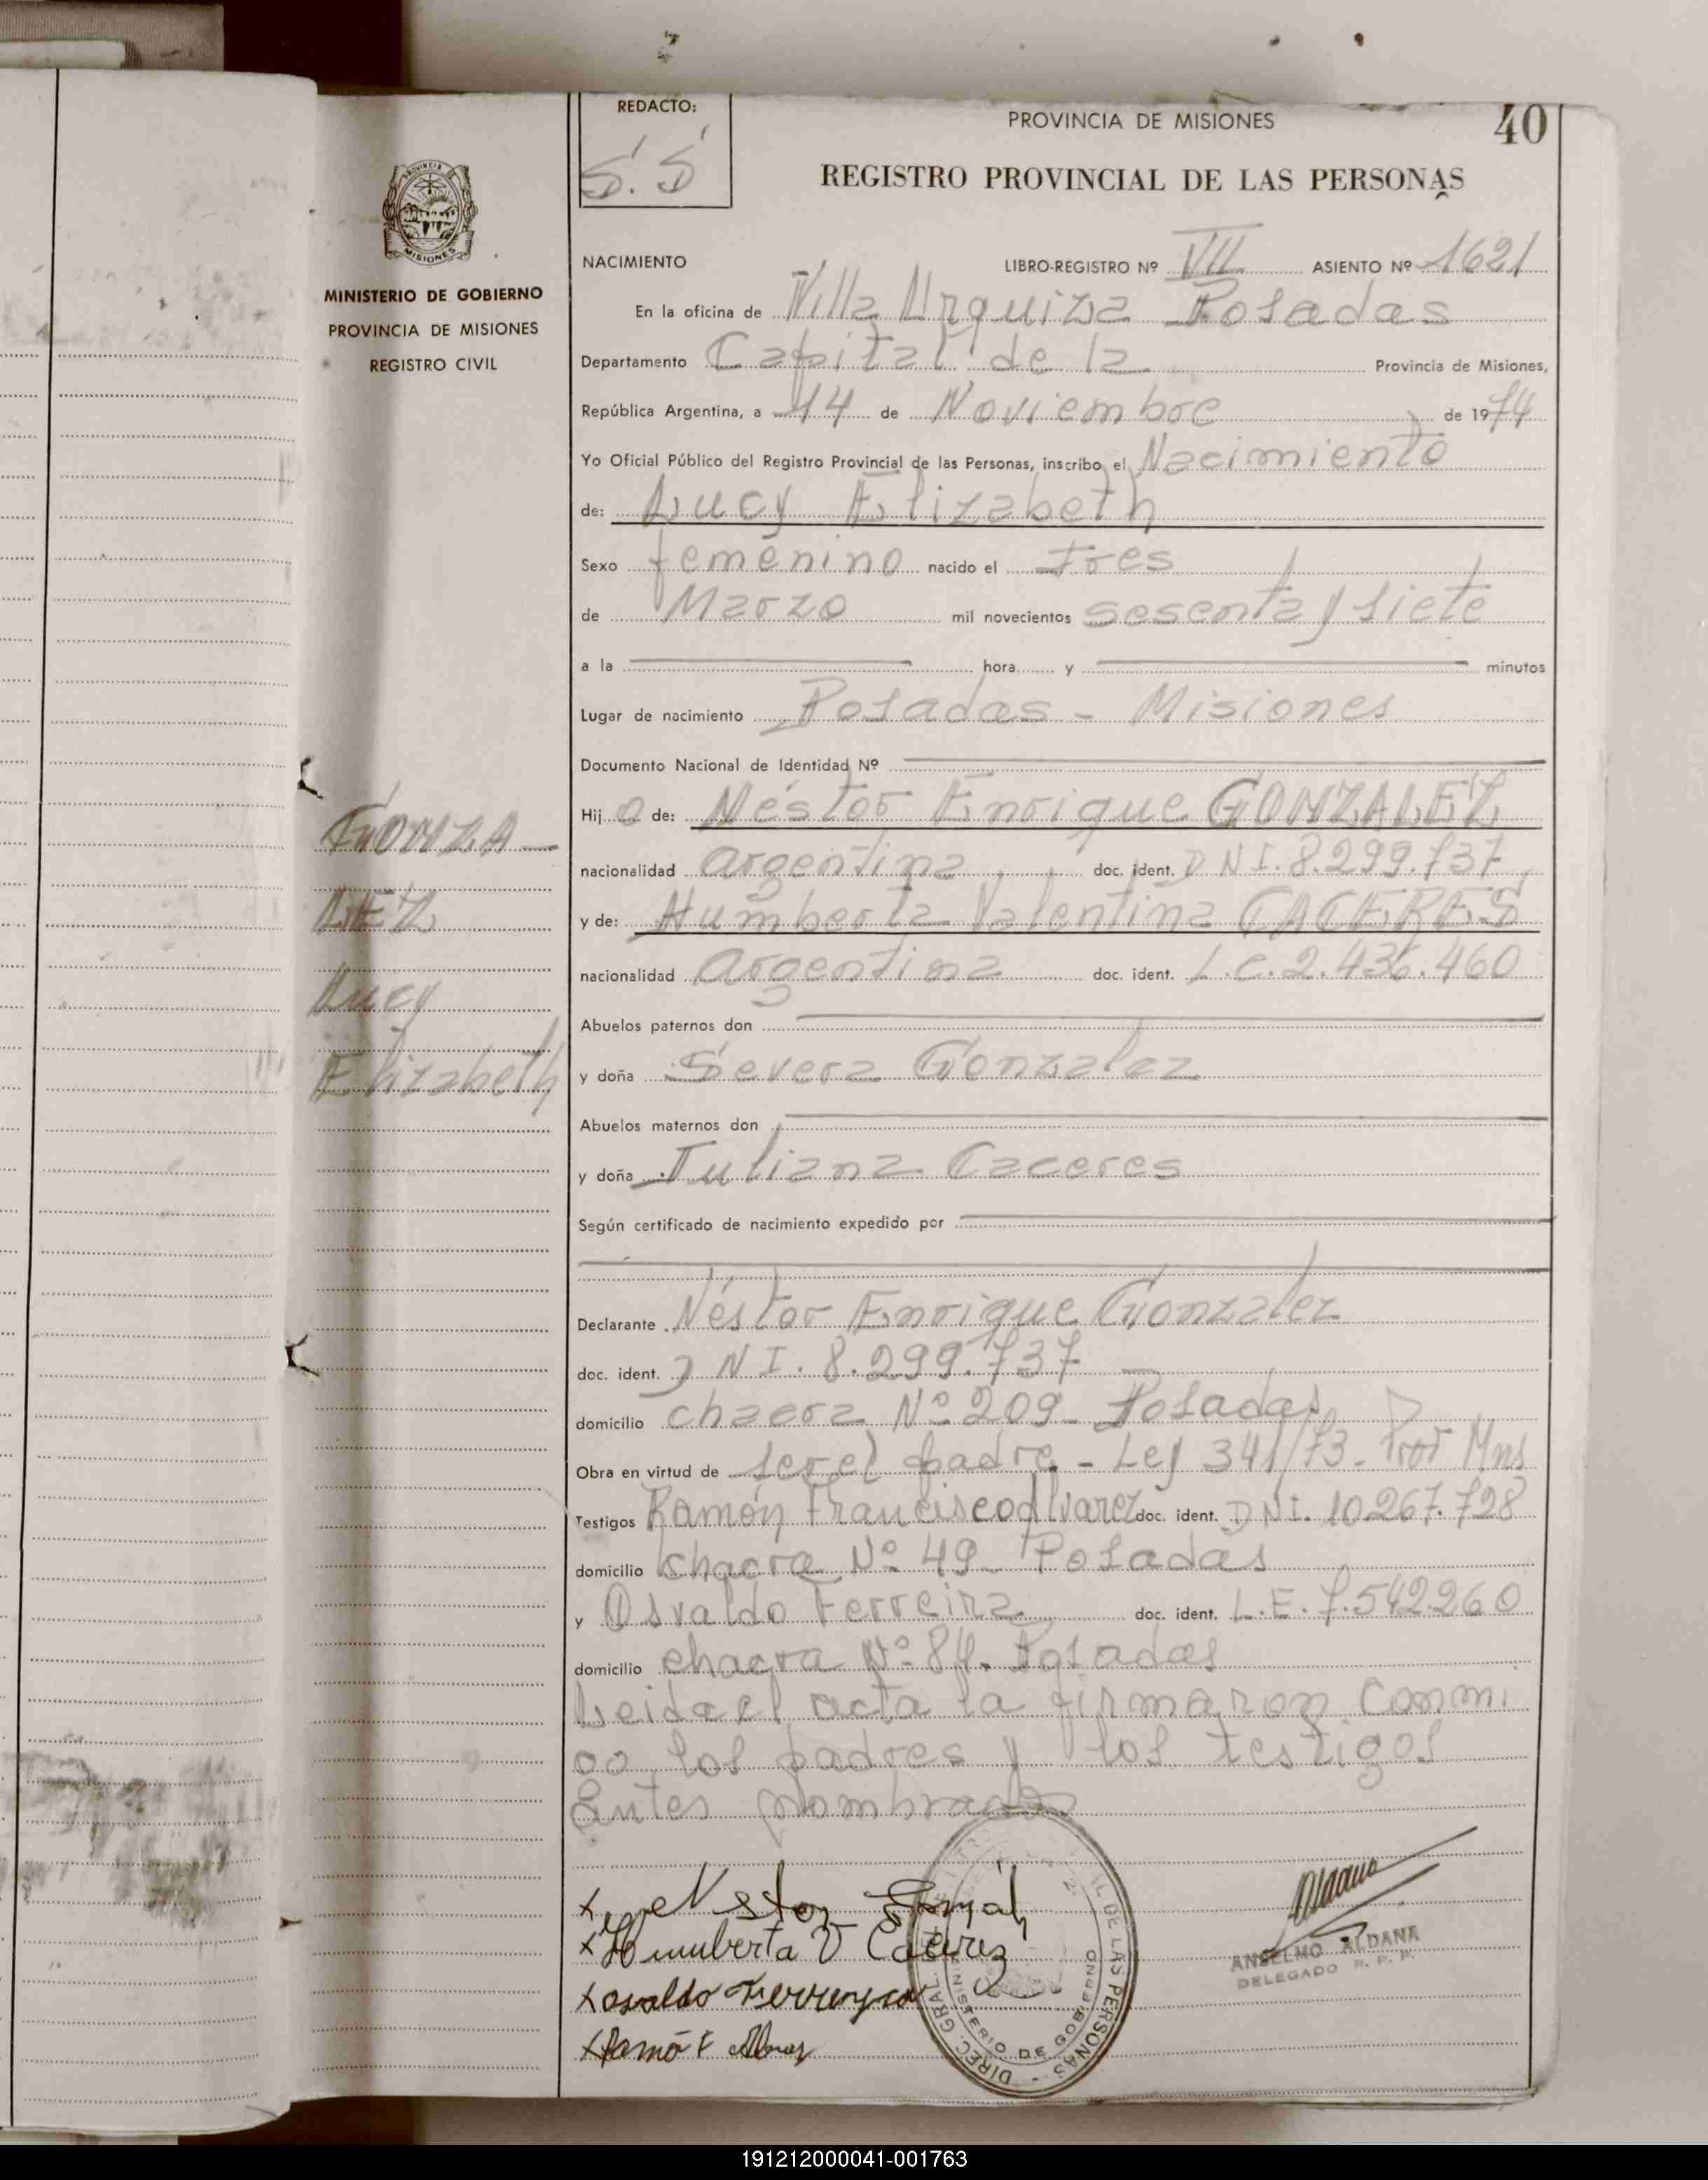 REDACTO:
S. S
PROVINCIA DE MISIONES
40
REGISTRO PROVINCIAL DE LAS PERSONAS
MISIONES
MINISTERIO DE GOBIERNO
PROVINCIA DE MISIONES
REGISTRO CIVIL
NACIMIENTO LIBRO-REGISTRO Nº VII ASIENTO Nº 1621
En la oficina de Villa Urquiza Posadas
Departamento Capital de la Provincia de Misiones,
República Argentina, a 14 de Noviembre de 1974
Yo Oficial Público del Registro Provincial de las Personas, inscribo el Nacimiento
de: Lucy Elizabeth
Sexo femenino nacido el Tres
de Marzo mil novecientos sesenta y siete
a la hora y minutos
Lugar de nacimiento Posadas - Misiones
Documento Nacional de Identidad Nº
Hij o de: Néstor Enrique GONZALEZ
nacionalidad argentina doc. ident. D N I. 8.299.737
y de: Humberta Valentina CACERES
nacionalidad Argentina doc. ident. L.C. 2.436.460
Abuelos paternos don
y doña Severa Gonzalez
Abuelos maternos don
y doña Juliana Caceres
Según certificado de nacimiento expedido por
Declarante Néstor Enrique Gonzalez
doc. ident. D N I. 8.299.737
domicilio chacra Nº 209 - Posadas
Obra en virtud de ser el padre - Ley 341/73 -
Testigos Ramón Francisco Alvarez doc. ident. DNI. 10.267.728
domicilio chacra Nº 49 - Posadas
y Osvaldo Ferreira doc. ident. L.E. 7.542.260
domicilio chacra Nº 84. Posadas
Leida el acta la firmaron conmi
go los padres y los testigos
antes nombrados
GONZA-
LEZ
Lucy
Elizabeth
x Nestor
x Humberta V Caceres
x osvaldo Ferreyra
x Ramó F
DIREC. GRAL. DE LAS PERSONAS
MINISTERIO DE GOBIERNO
Aldana
ANSELMO ALDANA
DELEGADO R. P. P.
191212000041-001763